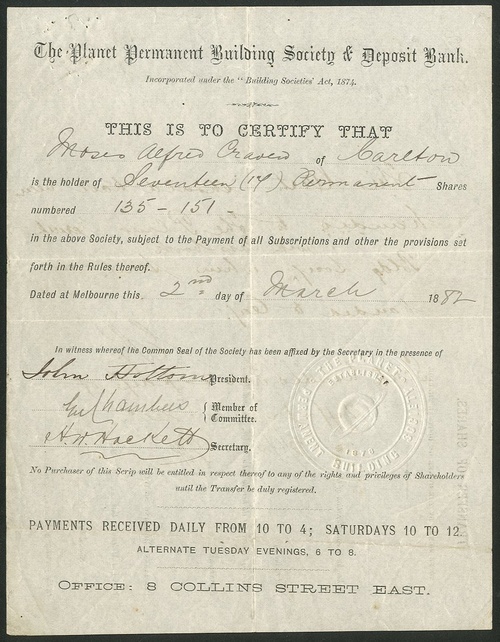 The Planet Permanent Building Society & Deposit Bank.
Incorporated under the "Building Societies' Act, 1874.
THIS IS TO CERTIFY THAT
Moses Alfred Craven of Carlton
is the holder of Seventeen (17) Permanent Shares
numbered 135 - 151
in the above Society, subject to the Payment of all Subscriptions and other the provisions set
forth in the Rules thereof.
Dated at Melbourne this 2nd day of March 1882
In witness whereof the Common Seal of the Society has been affixed by the Secretary in the presence of
John Hottom President.
Chambers Member of
Committee.
H. W. Hockett Secretary.
No Purchaser of this Scrip will be entitled in respect thereof to any of the rights and privileges of Shareholders
until the Transfer be duly registered.
PAYMENTS RECEIVED DAILY FROM 10 TO 4; SATURDAYS 10 TO 12.
ALTERNATE TUESDAY EVENINGS, 6 TO 8.
OFFICE: 8 COLLINS STREET EAST.